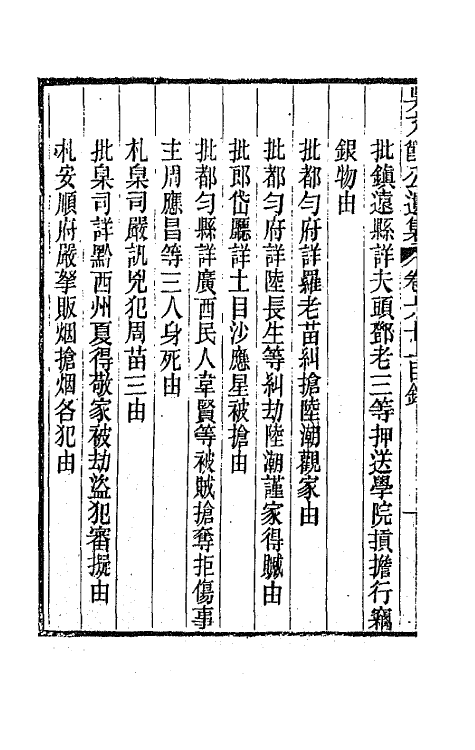 吳文節公遺集 卷六十一目錄 一
批鎮遠縣詳夫頭鄧老三等押送學院摃擔行竊
銀物由
批都勻府詳羅老苗糾搶陸潮觀家由
批都勻府詳陸長生等糾劫陸潮謹家得贓由
批郎岱廳詳土目沙應星被搶由
批都勻縣詳廣西民人韋賢等被賊搶奪拒傷事
主周應昌等三人身死由
札臬司嚴訊兇犯周苗三由
批臬司詳黔西州夏得敬家被劫盜犯審擬由
札安順府嚴拏販烟搶烟各犯由